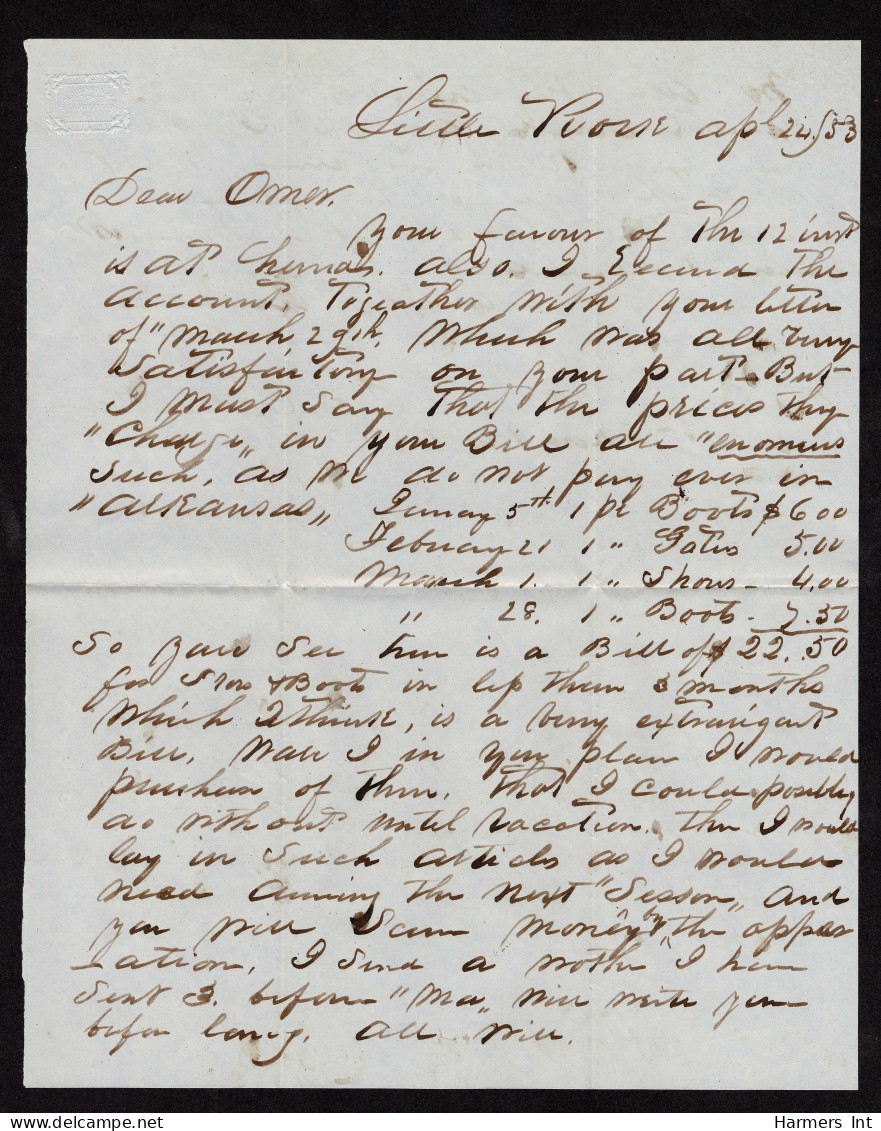 Little Rock apl 24/53
Dear Omer.
your favour of the 12 inst
is at hand. also. I Recend the
account, together with your letter
of "march 29th. which was all very
satisfactory on your part - But
I must say that the prices they
"Charge" in your Bill are "enomous
such, as we do not pay ever in
"arkansas" Junuay 5th. 1 pr Boots $6 00
Februay 21 1 " Gaters 5.00
March 1. 1 " Shoes - 4.00
" 28. 1 " Boots - 7.50
So you See here is a Bill of $22.50
for Shoes & Boots in less than 3 months
which I think, is a very extravigant
Bill, ware I in you plase I would
purchase of them, that I could possibly
do without until vacation, then I would
lay in such articles as I would
need during the next "Session" and
you will Save money by the opper
-ation, I Send a nothe I have
Sent 3. before "Ma" will write you
before long. all well.
Harmers Int